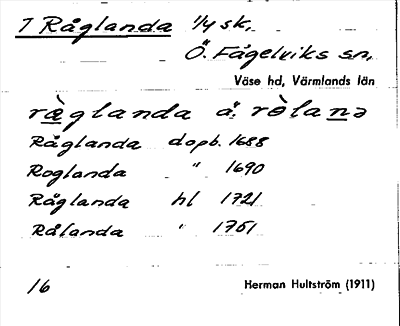 7 Råglanda 1/4 sk,
Ö. Fågelviks sn,
Väse hd, Värmlands län
ræ̀glanda ä. rò̀lanə
Råglanda dopb. 1688
Roglanda " 1690
Råglanda hl 1721
Rålanda " 1751
16 Herman Hultström (1911)